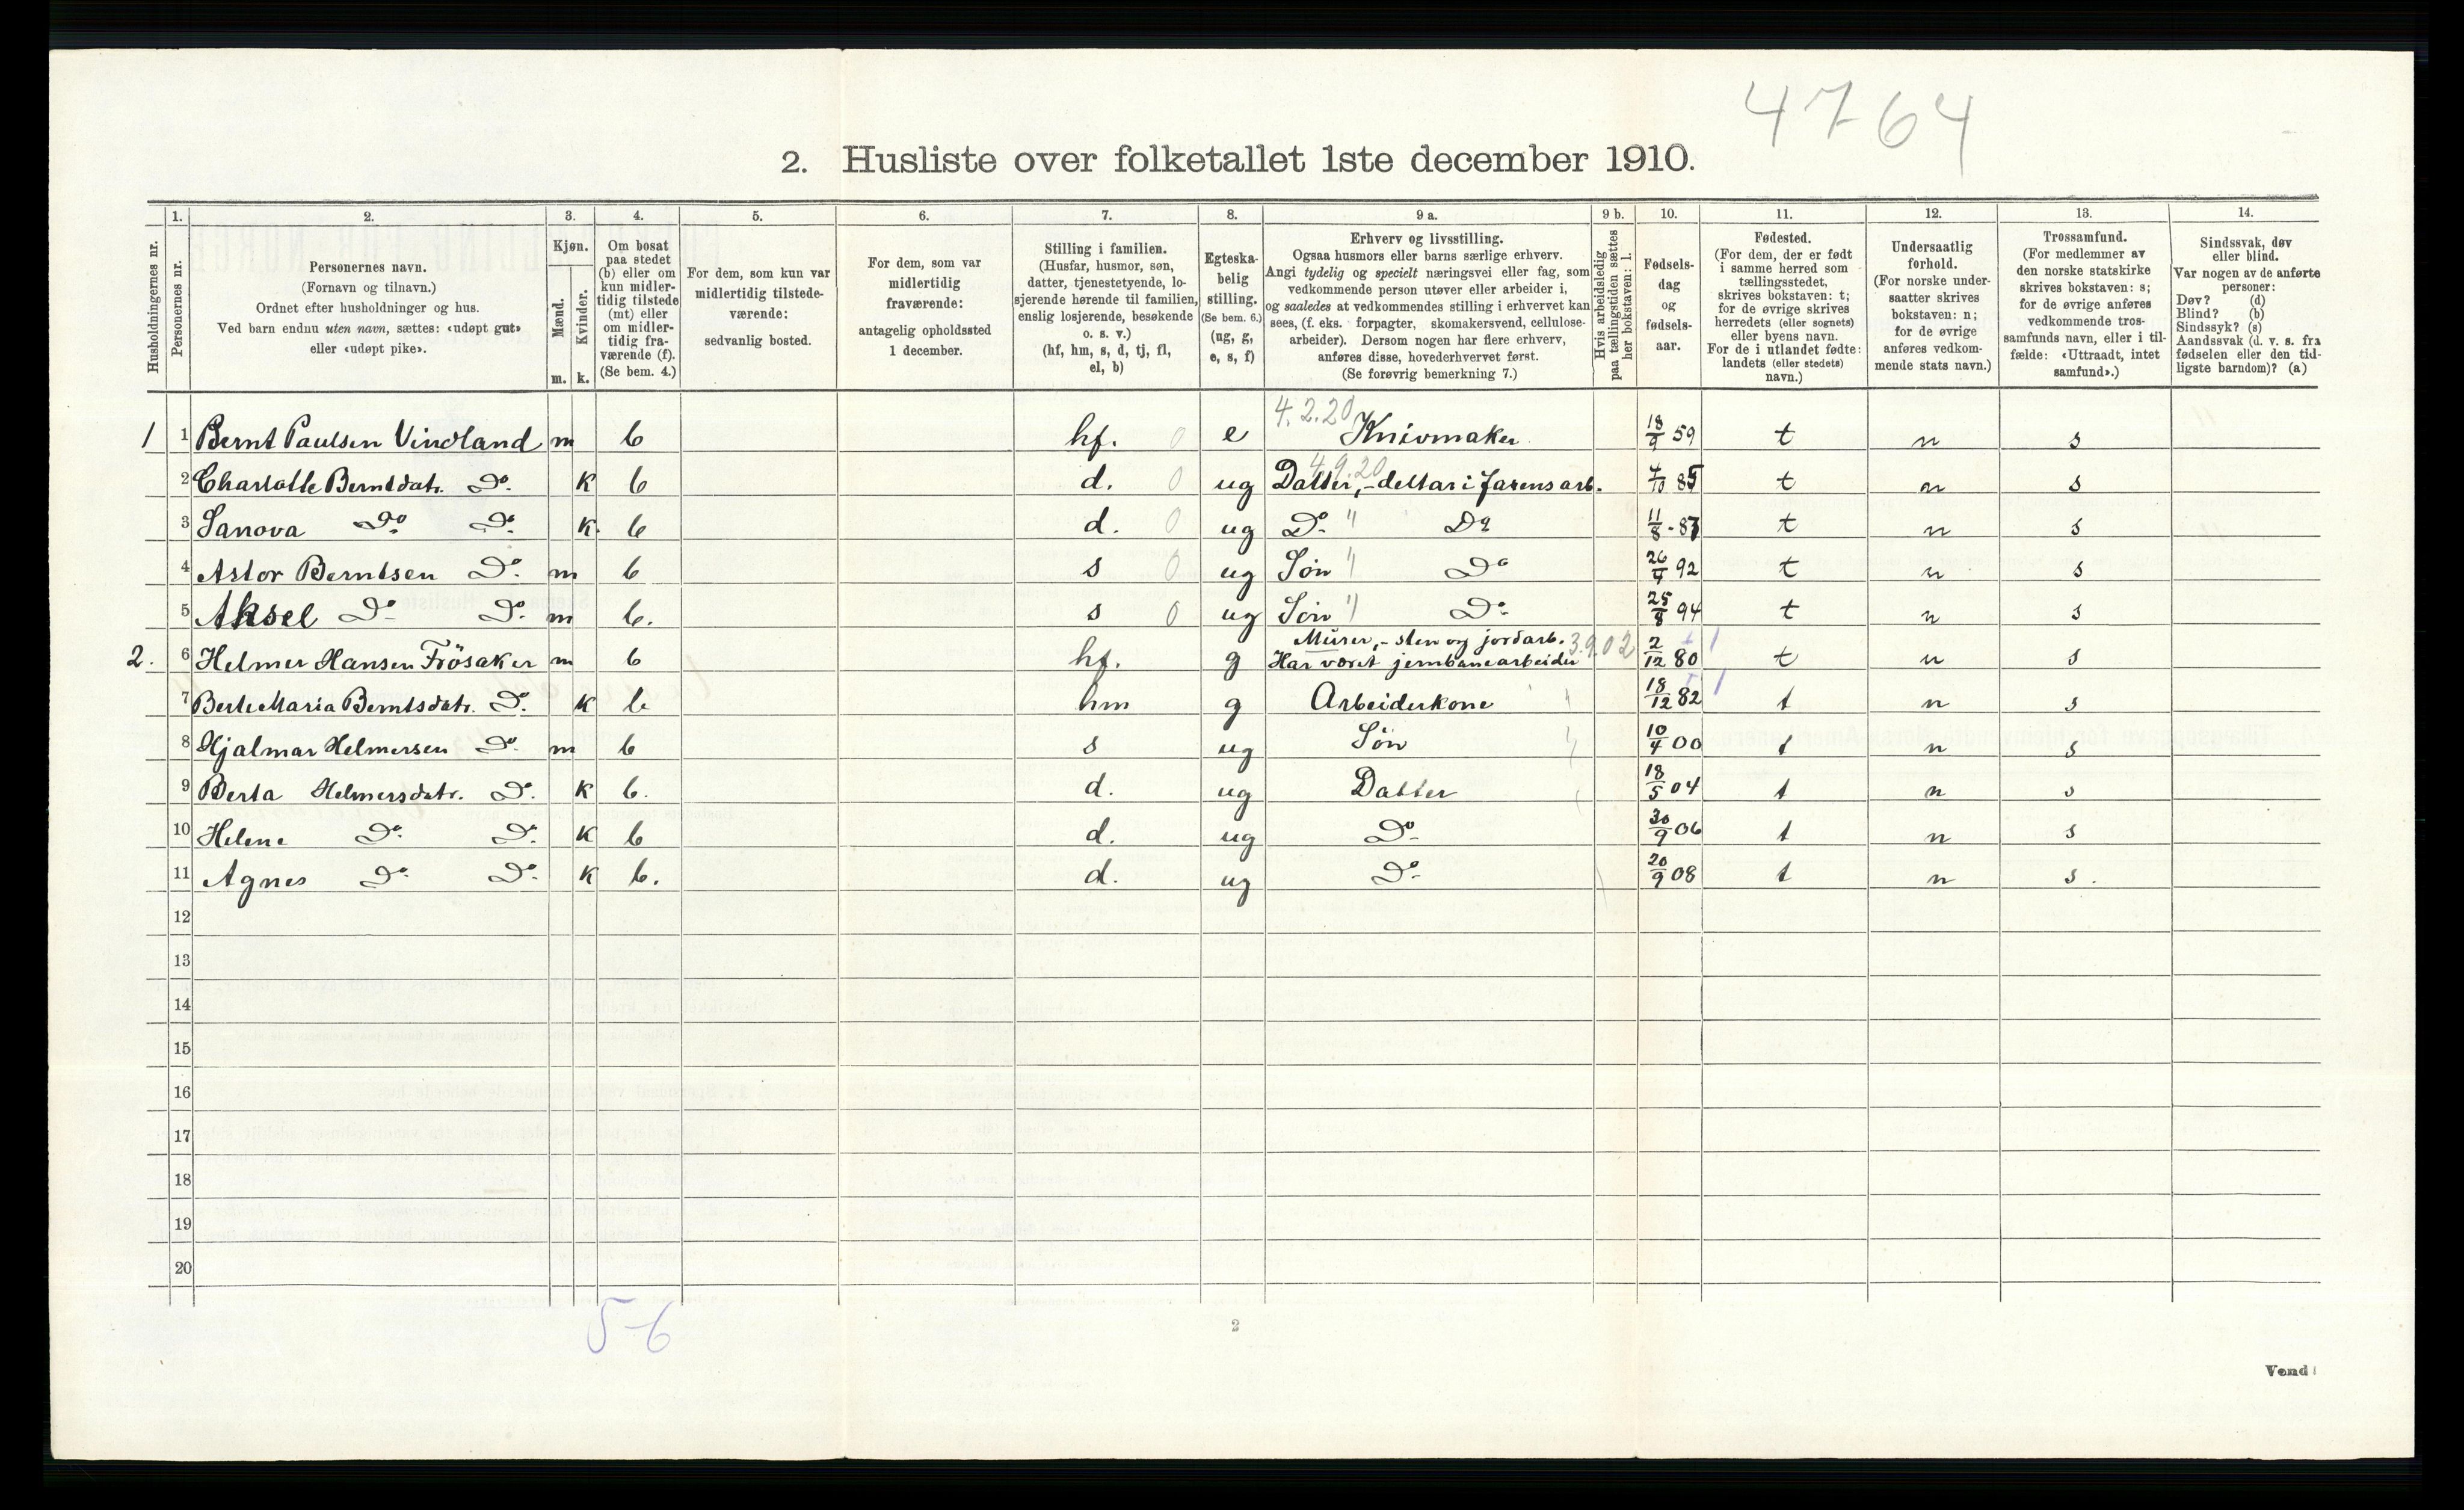 4764
2. Husliste over folketallet 1ste december 1910.
Husholdningernes nr.
1.
Personernes nr.
2.
Personernes navn.
(Fornavn og tilnavn.)
Ordnet efter husholdninger og hus.
Ved barn endnu uten navn, sættes: «udøpt gut»
eller «udøpt pike».
3.
Kjøn.
Mænd.
Kvinder.
m. k.
4.
Om bosat
paa stedet
(b) eller om
kun midler-
tidig tilstede
(mt) eller
om midler-
tidig fra-
værende (f).
(Se bem. 4.)
5.
For dem, som kun var
midlertidig tilstede-
værende:
sedvanlig bosted.
6.
For dem, som var
midlertidig
fraværende:
antagelig opholdssted
1 december.
7.
Stilling i familien.
(Husfar, husmor, søn,
datter, tjenestetyende, lo-
sjerende hørende til familien,
enslig losjerende, besøkende
o. s. v.)
(hf, hm, s, d, tj, fl,
el, b)
8.
Egteska-
belig
stilling.
(Se bem. 6.)
(ug, g,
e, s, f)
9 a.
Erhverv og livsstilling.
Ogsaa husmors eller barns særlige erhverv.
Angi tydelig og specielt næringsvei eller fag, som
vedkommende person utøver eller arbeider i,
og saaledes at vedkommendes stilling i erhvervet kan
sees, (f. eks. forpagter, skomakersvend, cellulose-
arbeider). Dersom nogen har flere erhverv,
anføres disse, hovederhvervet først.
(Se forøvrig bemerkning 7.)
9 b.
Hvis arbeidsledig
paa tællingstiden sættes
her bokstaven: l.
10.
Fødsels-
dag
og
fødsels-
aar.
11.
Fødested.
(For dem, der er født
i samme herred som
tællingsstedet,
skrives bokstaven: t;
for de øvrige skrives
herredets (eller sognets)
eller byens navn.
For de i utlandet fødte:
landets (eller stedets)
navn.)
12.
Undersaatlig
forhold.
(For norske under-
saatter skrives
bokstaven: n;
for de øvrige
anføres vedkom-
mende stats navn.)
13.
Trossamfund.
(For medlemmer av
den norske statskirke
skrives bokstaven: s;
for de øvrige anføres
vedkommende tros-
samfunds navn, eller i til-
fælde: «Uttraadt, intet
samfund».)
14.
Sindssvak, døv
eller blind.
Var nogen av de anførte
personer:
Døv? (d)
Blind? (b)
Sindssyk? (s)
Aandssvak (d. v. s. fra
fødselen eller den tid-
ligste barndom)? (a)
4.2.20
1 1 Bernt Paulsen Vindland m b hf. 0 e Knivmaker 18/9 59 t n s
4.9.20
2 Charlotte Berntdatr. Do. k b d. 0 ug Datter, - deltar i farens arb. 4/10 85 t n s
3 Sanova Do Do. k. b d. 0 ug Do. " Do 11/8 - 87 t n s
4 Astor Berntsen Do. m b s 0 ug Søn " Do 26/9 92 t n s
5 Aksel Do Do. m b. s 0 ug Søn " Do 25/8 94 t n s
Murer, - sten og jordarb. 3.9.02
2. 6 Helmer Hansen Frösaker m b hf. g Har været jernbanearbeider 2/12 80 t n s
7 Berte Maria Berntsdatr. Do. k b hm g Arbeiderkone 18/12 82 t n s
8 Hjalmar Helmersen Do. m b s ug Søn 10/4 00 t n s
9 Berta Helmersdatr. Do. k b. d. ug Datter 18/5 04 t n s
10 Helene Do. Do. k b d. ug Do. 30/9 06 t n s
11 Agnes Do. Do. k b. d. ug Do. 20/9 08 t n s.
12
13
14
15
16
17
18
19
20
5-6
2
Vend